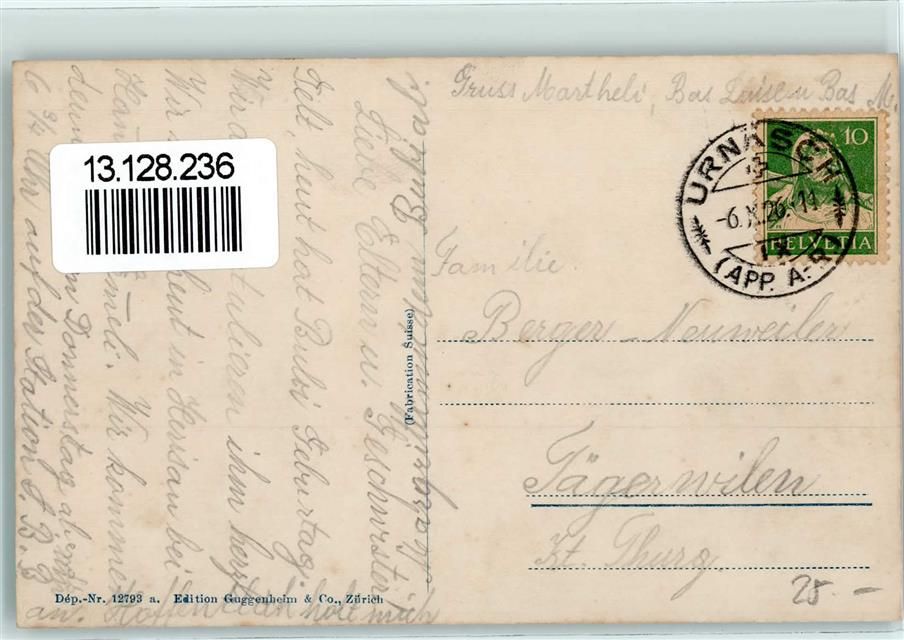 Gruss Martheli,
10
HELVETIA
URNÄSCH
-6.X.26.-11
(APP. A.-R.)
13.128.236
Familie
Berger-Neuweiler
Tägerwilen
Kt. Thurg
25 -
(Fabrication Suisse)
Liebe Eltern u. Geschwister
Gelt, heut hat Bubi Geburtstag.
Wir gratulieren ihm herzl
Wir heut in Herisau bei
Wir kommen
denn Donnerstag abend
6 3/4 Uhr auf der Station S.B.B
an. Hoffentlich holt mich
Dép.-Nr. 12793 a. Edition Guggenheim & Co., Zürich